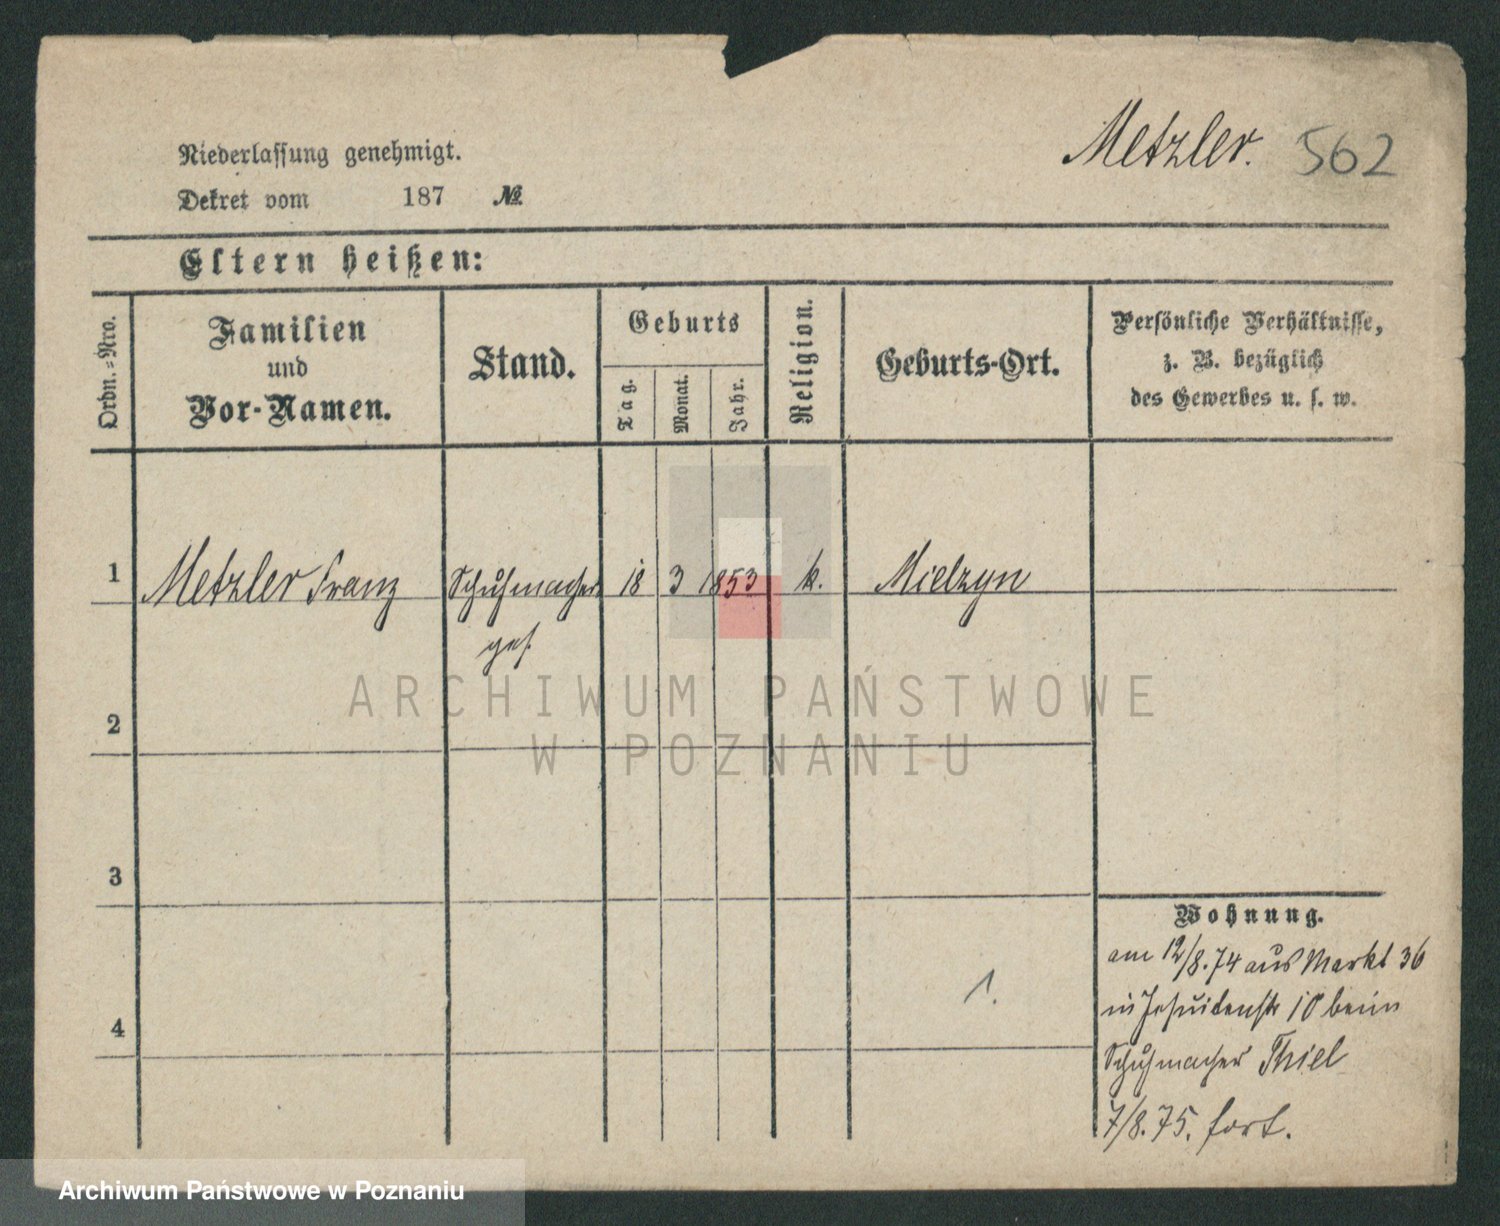 Metzler. 562
Niederlassung genehmigt.
Dekret vom 187 №
Eltern heißen:
Ordn.-Nro.
Familien
und
Vor-Namen.
Stand.
Geburts
Tag.
Monat.
Jahr.
Religion.
Geburts-Ort.
Persönliche Verhältnisse,
z. B. bezüglich
des Gewerbes u. s. w.
1 Metzler Franz Schuhmacher 18 3 1853 k. Mielzyn
ges.
ARCHIWUM PAŃSTWOWE
W POZNANIU
2
3
4
1.
Wohnung.
am 12/8.74 aus Markt 36
in Jesuitenstr 10 beim
Schuhmacher Thiel
7/8.75. fort.
Archiwum Państwowe w Poznaniu